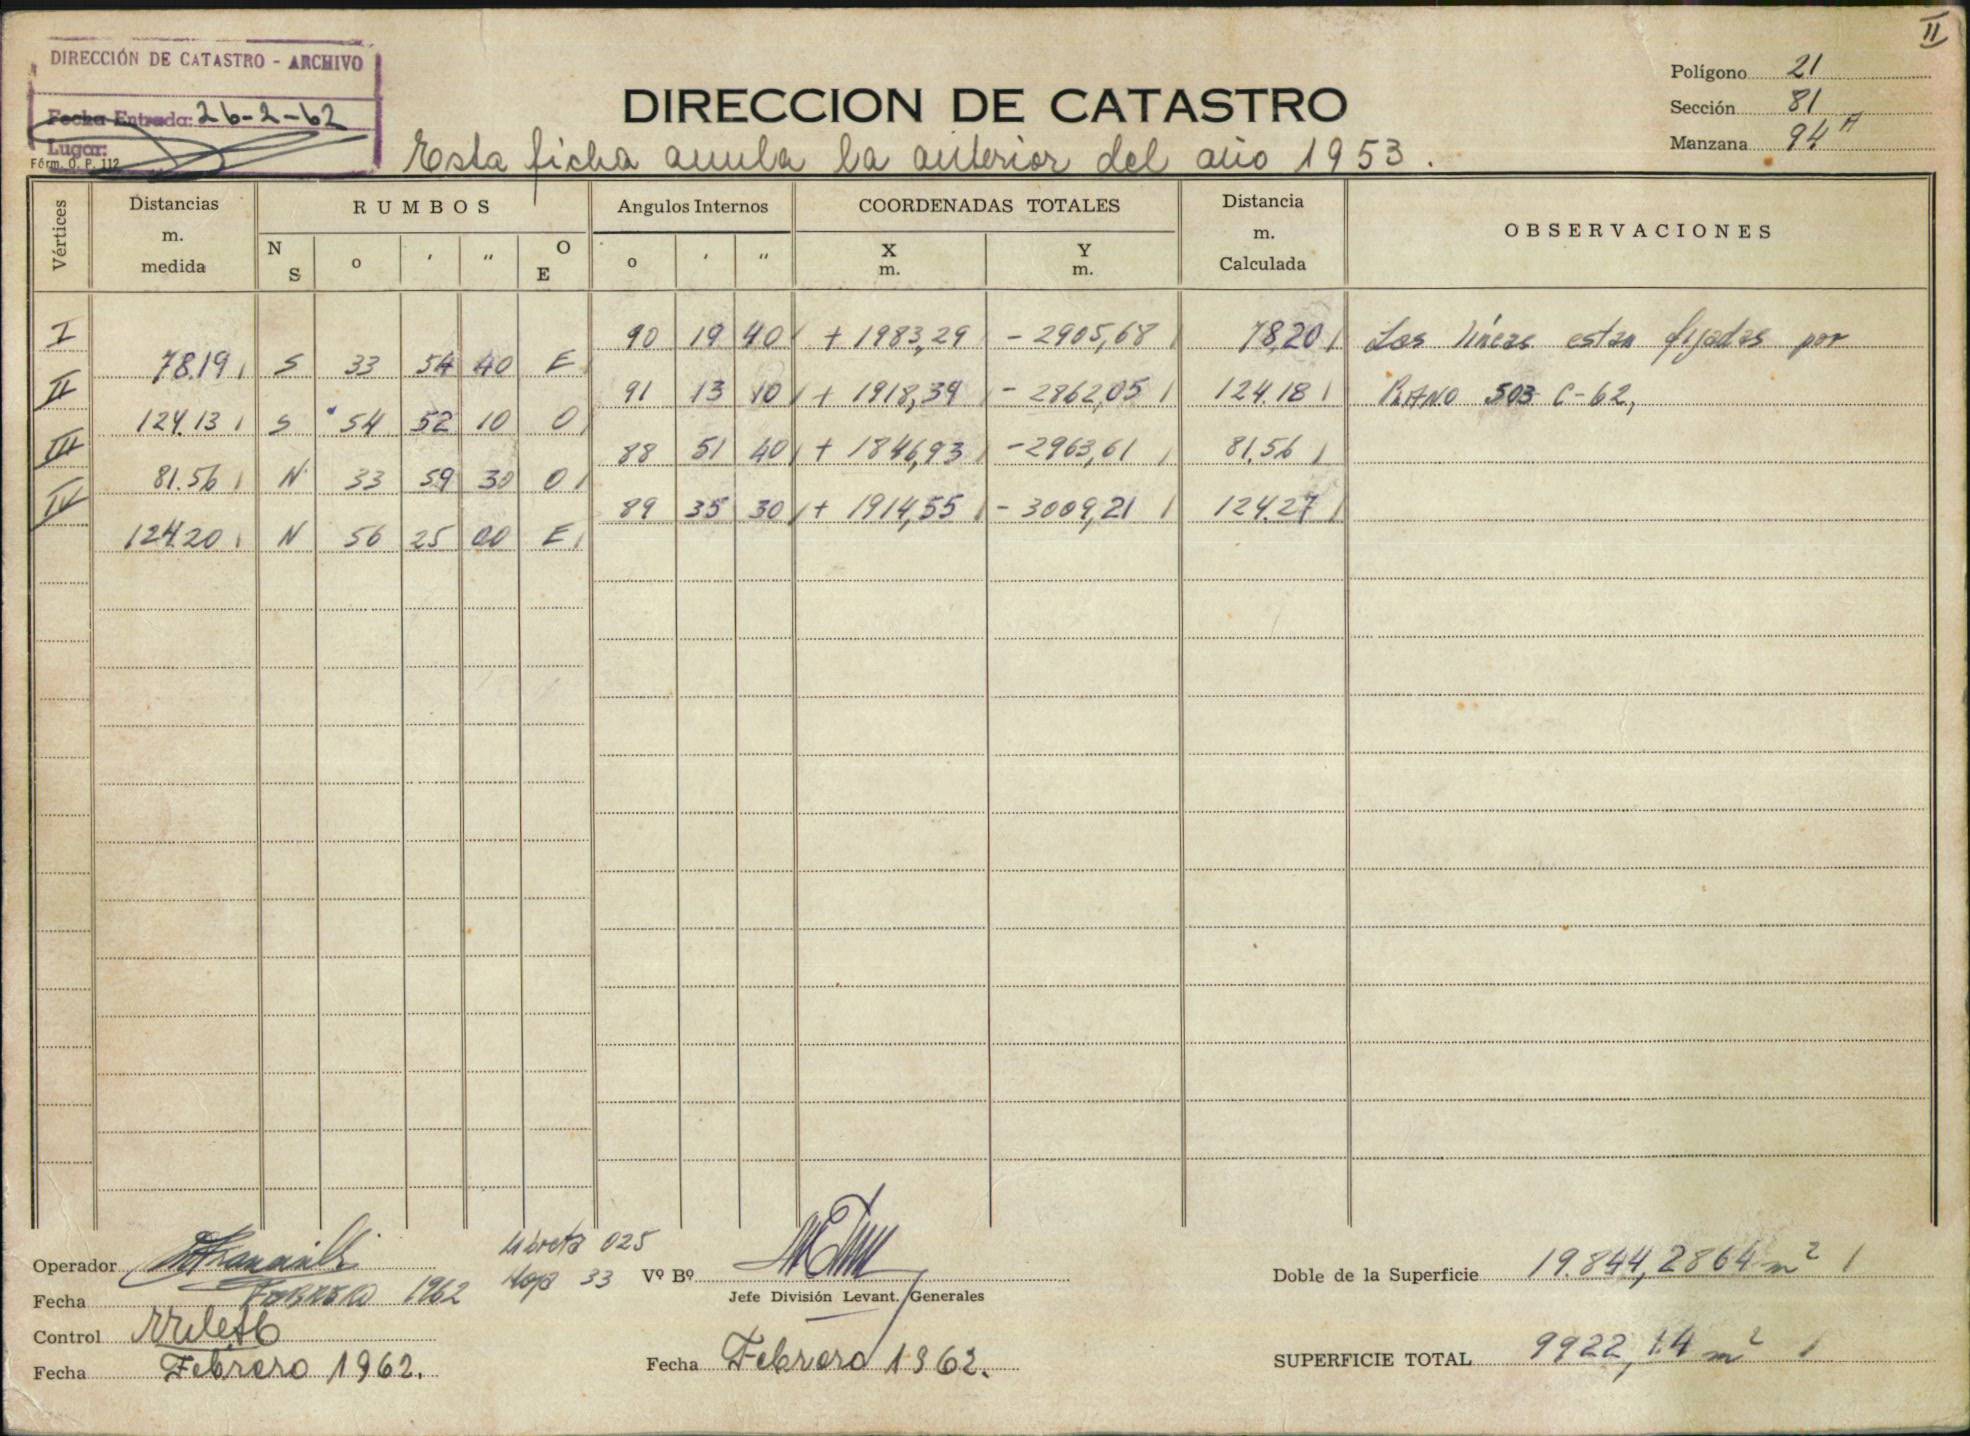 II
DIRECCIÓN DE CATASTRO - ARCHIVO
Fecha Entrada: 26-2-62
Lugar:
Fórm. O. P. 112
DIRECCION DE CATASTRO
Polígono 21
Sección 81
Manzana 94 A
Esta ficha anula la anterior del año 1953.
Vértices
Distancias m. medida
RUMBOS
N S o ' " O E
Angulos Internos
o ' "
COORDENADAS TOTALES
X m. Y m.
Distancia m. Calculada
OBSERVACIONES
I 90 19 40 + 1983,29 - 2905,68 78,20 Las líneas estan fijadas por
78.19 S 33 54 40 E
II 91 13 10 + 1918,39 - 2862,05 124.18 PLANO 503 C-62,
124.13 S 54 52 10 O
III 88 51 40 + 1846,93 - 2963,61 81.56
81.56 N 33 59 30 O
IV 89 35 30 + 1914,55 - 3009,21 124.27
124.20 N 56 25 00 E
Operador
Libreta 025
Fecha FEBRERO 1962
Hoja 33
Vº Bº
Jefe División Levant. Generales
Control
Fecha Febrero 1962.
Fecha Febrero 1962.
Doble de la Superficie 19.844,2864 m²
SUPERFICIE TOTAL 9922,14 m²